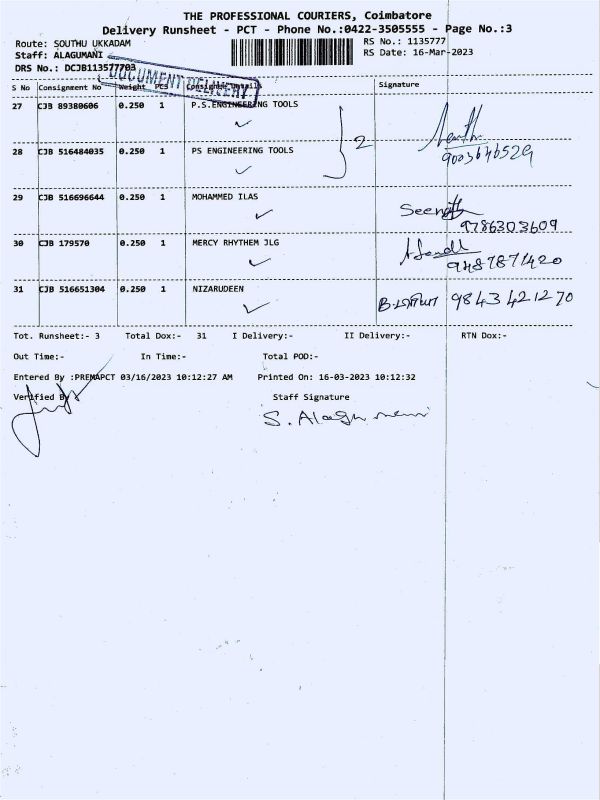 THE PROFESSIONAL COURIERS, Coimbatore
Delivery Runsheet - PCT - Phone No.:0422-3505555 - Page No.:3
Route: SOUTHU UKKADAM
RS No.: 1135777
Staff: ALAGUMANI
RS Date: 16-Mar-2023
DRS No.: DCJB113577703
DOCUMENT DELIVERY
S No Consignment No Weight PCS Consignee Details Signature
27 CJB 89380606 0.250 1 P.S.ENGINEERING TOOLS
2
9003646529
28 CJB 516484035 0.250 1 PS ENGINEERING TOOLS
29 CJB 516696644 0.250 1 MOHAMMED ILAS
9786303609
30 CJB 179570 0.250 1 MERCY RHYTHEM JLG
9487871420
31 CJB 516651304 0.250 1 NIZARUDEEN
9843421270
Tot. Runsheet:- 3 Total Dox:- 31 I Delivery:- II Delivery:- RTN Dox:-
Out Time:- In Time:- Total POD:-
Entered By :PREMAPCT 03/16/2023 10:12:27 AM Printed On: 16-03-2023 10:12:32
Verified By Staff Signature
S. Alagumani